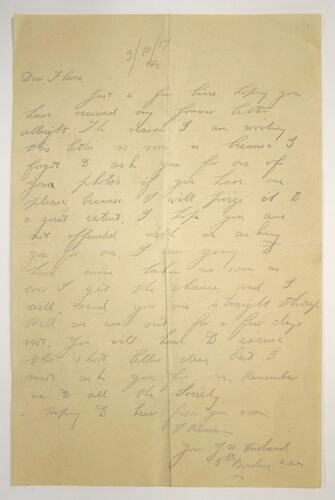 3/10/17
Dear Flora
Just a few lines hoping you
have received my former letter
allright. The reason I am writing
this letter so soon is because I
forgot to ask you for one of
your photos if you have one
please because I will prize it to
a great extent. I hope you are
not offended with me asking
you for one. I am going to
have mine taken as soon as
ever I get the chance, and I
will send you one straight through
Well we are out for a few days
rest. You will have to excuse
this short letter dear but I
must ask you for one. Remember
me to all the Society.
Hoping to hear from you soon
I Remain
Your J.W.
5th Borders